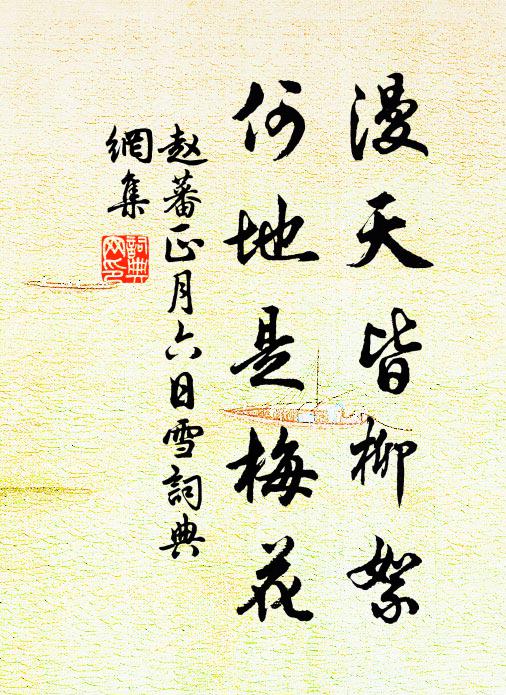 漫天皆柳絮
何地是梅花
赵蕃正月六日雪詞典
網集
詞典
网印